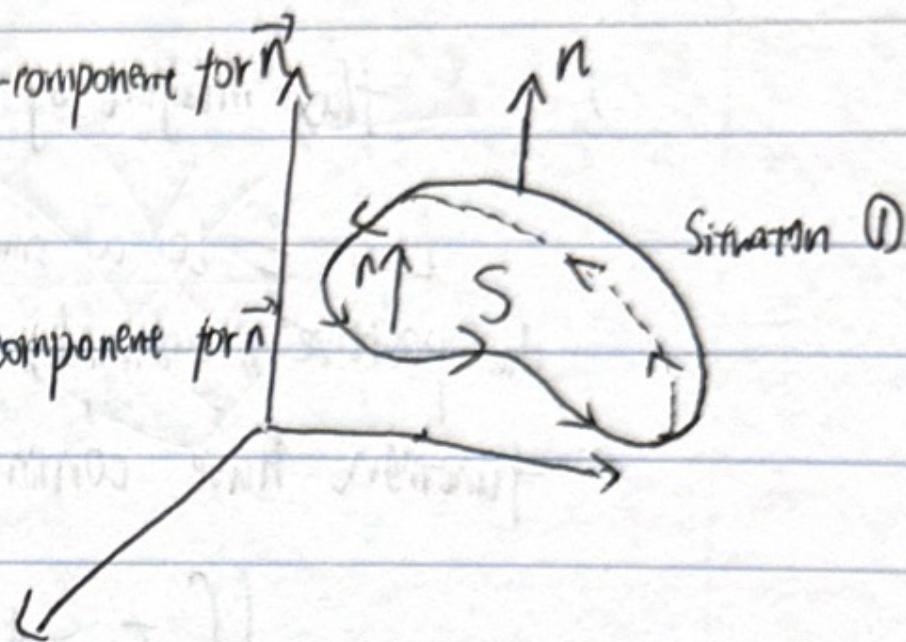 -component for n⃗
n
Situation ①
n
S
component for n⃗